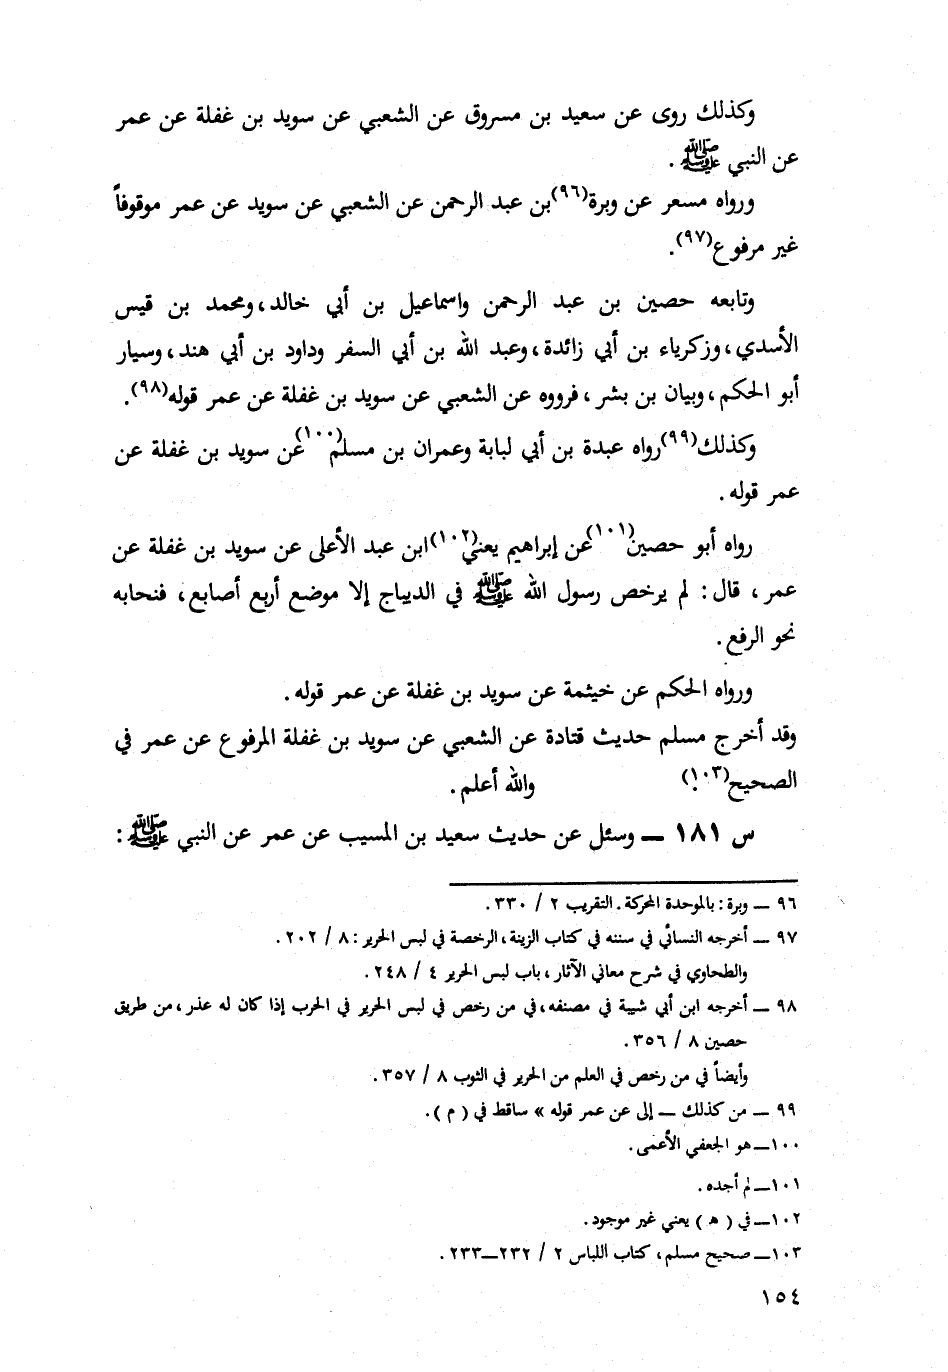 وكذلك روى عن سعيد بن مسروق عن الشعبي عن سويد بن غفلة عن عمر
عن النبي ﷺ .
ورواه مسعر عن وبرة(٩٦)بن عبد الرحمن عن الشعبي عن سويد عن عمر موقوفاً
غير مرفوع(٩٧).
وتابعه حصين بن عبد الرحمن واسماعيل بن أبي خالد، ومحمد بن قيس
الأسدي، وزكرياء بن أبي زائدة، وعبد الله بن أبي السفر وداود بن أبي هند، وسيار
أبو الحكم، وبيان بن بشر، فرووه عن الشعبي عن سويد بن غفلة عن عمر قوله(٩٨).
وكذلك(٩٩)رواه عبدة بن أبي لبابة وعمران بن مسلم(١٠٠)عن سويد بن غفلة عن
عمر قوله .
رواه أبو حصين(١٠١)عن إبراهيم يعني(١٠٢)ابن عبد الأعلى عن سويد بن غفلة عن
عمر، قال: لم يرخص رسول الله ﷺ في الديباج إلا موضع أربع أصابع، فنحابه
نحو الرفع .
ورواه الحكم عن خيثمة عن سويد بن غفلة عن عمر قوله .
وقد أخرج مسلم حديث قتادة عن الشعبي عن سويد بن غفلة المرفوع عن عمر في
الصحيح(١٠٣). والله أعلم .
س ١٨١ ــ وسئل عن حديث سعيد بن المسيب عن عمر عن النبي ﷺ :
٩٦ ــ وبرة : بالموحدة المحركة . التقريب ٢ / ٣٣٠ .
٩٧ ــ أخرجه النسائي في سننه في كتاب الزينة، الرخصة في لبس الحرير : ٨ / ٢٠٢ .
والطحاوي في شرح معاني الآثار، باب لبس الحرير ٤ / ٢٤٨ .
٩٨ ــ أخرجه ابن أبي شيبة في مصنفه، في من رخص في لبس الحرير في الحرب إذا كان له عذر، من طريق
حصين ٨ / ٣٥٦ .
وأيضاً في من رخص في العلم من الحرير في الثوب ٨ / ٣٥٧ .
٩٩ ــ من كذلك ــ إلى عن عمر قوله » ساقط في ( م ) .
١٠٠ــ هو الجعفي الأعمى .
١٠١ــ لم أجده .
١٠٢ــ في ( هـ ) يعني غير موجود .
١٠٣ــ صحيح مسلم، كتاب اللباس ٢ / ٢٣٢ــ٢٣٣ .
١٥٤